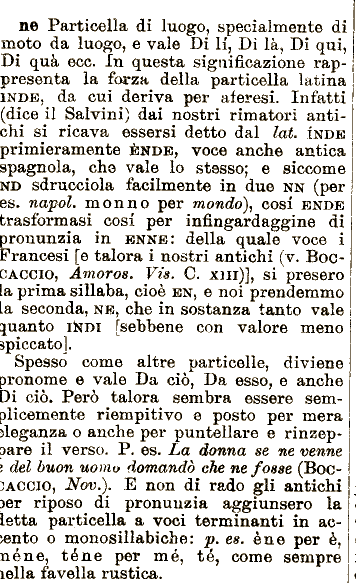 ne Particella di luogo, specialmente di
moto da luogo, e vale Di lí, Di là, Di qui,
Di quà ecc. In questa significazione rap-
presenta la forza della particella latina
INDE, da cui deriva per aferesi. Infatti
(dice il Salvini) dai nostri rimatori anti-
chi si ricava essersi detto dal lat. ÍNDE
primieramente ÈNDE, voce anche antica
spagnola, che vale lo stesso; e siccome
ND sdrucciola facilmente in due NN (per
es. napol. monno per mondo), cosí ENDE
trasformasi cosí per infingardaggine di
pronunzia in ENNE: della quale voce i
Francesi [e talora i nostri antichi (v. BOC-
CACCIO, Amoros. Vis. C. XIII)], si presero
la prima sillaba, cioè EN, e noi prendemmo
la seconda, NE, che in sostanza tanto vale
quanto INDI [sebbene con valore meno
spiccato].
Spesso come altre particelle, diviene
pronome e vale Da ciò, Da esso, e anche
Di ciò. Però talora sembra essere sem-
plicemente riempitivo e posto per mera
eleganza o anche per puntellare e rinzep-
pare il verso. P. es. La donna se ne venne
e del buon uomo domandò che ne fosse (BOC-
CACCIO, Nov.). E non di rado gli antichi
per riposo di pronunzia aggiunsero la
detta particella a voci terminanti in ac-
cento o monosillabiche: p. es. ène per è,
méne, téne per mé, té, come sempre
nella favella rustica.